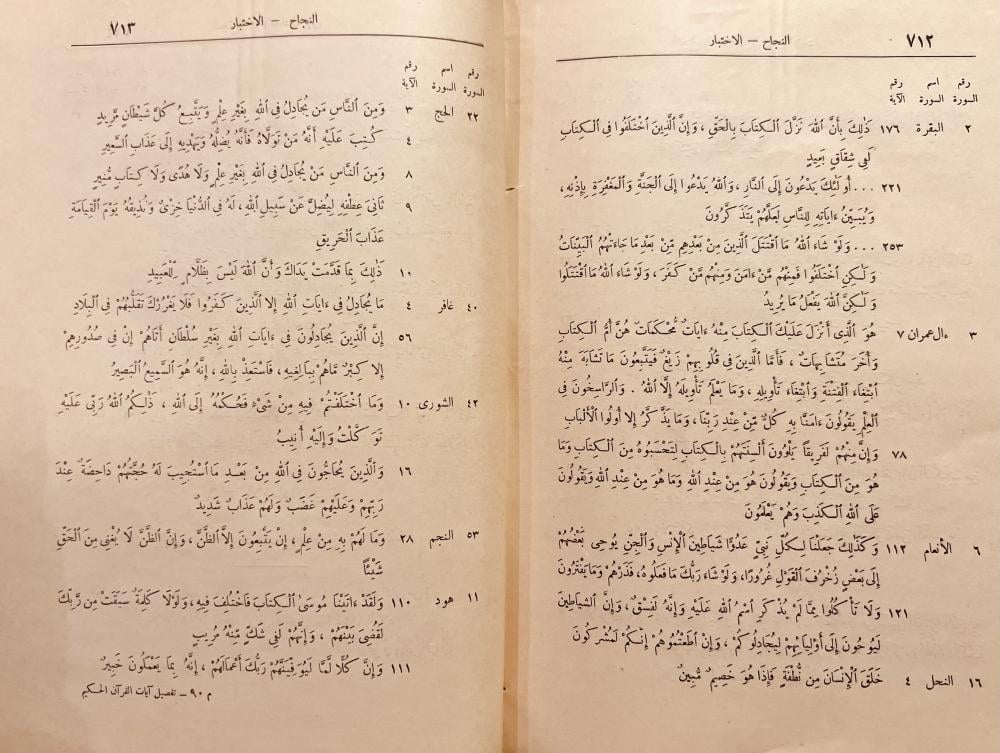 ٧١٢
النجاح — الاختبار
رقم اسم رقم
السورة السورة الآية
٢ البقرة ١٧٦ ذَٰلِكَ بِأَنَّ اللهَ نَزَّلَ الْكِتَابَ بِالْحَقِّ ، وَإِنَّ الَّذِينَ اخْتَلَفُوا فِي الْكِتَابِ
لَفِي شِقَاقٍ بَعِيدٍ
٢٢١ ... أُولَٰئِكَ يَدْعُونَ إِلَى النَّارِ ، وَاللهُ يَدْعُوا إِلَى الْجَنَّةِ وَالْمَغْفِرَةِ بِإِذْنِهِ ،
وَيُبَيِّنُ ءَايَاتِهِ لِلنَّاسِ لَعَلَّهُمْ يَتَذَكَّرُونَ
٢٥٣ ... وَلَوْ شَاءَ اللهُ مَا اقْتَتَلَ الَّذِينَ مِنْ بَعْدِهِم مِّنْ بَعْدِ مَا جَاءَتْهُمُ الْبَيِّنَاتُ
وَلَٰكِنِ اخْتَلَفُوا فَمِنْهُم مَّنْ ءَامَنَ وَمِنْهُم مَّنْ كَفَرَ ، وَلَوْ شَاءَ اللهُ مَا اقْتَتَلُوا
وَلَٰكِنَّ اللهَ يَفْعَلُ مَا يُرِيدُ
٣ ءال عمران ٧ هُوَ الَّذِي أَنْزَلَ عَلَيْكَ الْكِتَابَ مِنْهُ ءَايَاتٌ مُّحْكَمَاتٌ هُنَّ أُمُّ الْكِتَابِ
وَأُخَرُ مُتَشَابِهَاتٌ ، فَأَمَّا الَّذِينَ فِي قُلُوبِهِمْ زَيْغٌ فَيَتَّبِعُونَ مَا تَشَابَهَ مِنْهُ
ابْتِغَاءَ الْفِتْنَةِ وَابْتِغَاءَ تَأْوِيلِهِ ، وَمَا يَعْلَمُ تَأْوِيلَهُ إِلَّا اللهُ . وَالرَّاسِخُونَ فِي
الْعِلْمِ يَقُولُونَ ءَامَنَّا بِهِ كُلٌّ مِّنْ عِنْدِ رَبِّنَا ، وَمَا يَذَّكَّرُ إِلَّا أُولُوا الْأَلْبَابِ
٧٨ وَإِنَّ مِنْهُمْ لَفَرِيقًا يَلْوُونَ أَلْسِنَتَهُمْ بِالْكِتَابِ لِتَحْسَبُوهُ مِنَ الْكِتَابِ وَمَا
هُوَ مِنَ الْكِتَابِ وَيَقُولُونَ هُوَ مِنْ عِنْدِ اللهِ وَمَا هُوَ مِنْ عِنْدِ اللهِ وَيَقُولُونَ
عَلَى اللهِ الْكَذِبَ وَهُمْ يَعْلَمُونَ
٦ الأنعام ١١٢ وَكَذَٰلِكَ جَعَلْنَا لِكُلِّ نَبِيٍّ عَدُوًّا شَيَاطِينَ الْإِنْسِ وَالْجِنِّ يُوحِي بَعْضُهُمْ
إِلَى بَعْضٍ زُخْرُفَ الْقَوْلِ غُرُورًا ، وَلَوْ شَاءَ رَبُّكَ مَا فَعَلُوهُ ، فَذَرْهُمْ وَمَا يَفْتَرُونَ
١٢١ وَلَا تَأْكُلُوا مِمَّا لَمْ يُذْكَرِ اسْمُ اللهِ عَلَيْهِ وَإِنَّهُ لَفِسْقٌ ، وَإِنَّ الشَّيَاطِينَ
لَيُوحُونَ إِلَى أَوْلِيَائِهِمْ لِيُجَادِلُوكُمْ ، وَإِنْ أَطَعْتُمُوهُمْ إِنَّكُمْ لَمُشْرِكُونَ
١٦ النحل ٤ خَلَقَ الْإِنْسَانَ مِن نُّطْفَةٍ فَإِذَا هُوَ خَصِيمٌ مُّبِينٌ
النجاح — الاختبار
٧١٣
رقم اسم رقم
السورة السورة الآية
٢٢ الحج ٣ وَمِنَ النَّاسِ مَن يُجَادِلُ فِي اللهِ بِغَيْرِ عِلْمٍ وَيَتَّبِعُ كُلَّ شَيْطَانٍ مَّرِيدٍ
٤ كُتِبَ عَلَيْهِ أَنَّهُ مَنْ تَوَلَّاهُ فَأَنَّهُ يُضِلُّهُ وَيَهْدِيهِ إِلَى عَذَابِ السَّعِيرِ
٨ وَمِنَ النَّاسِ مَنْ يُجَادِلُ فِي اللهِ بِغَيْرِ عِلْمٍ وَلَا هُدًى وَلَا كِتَابٍ مُّنِيرٍ
٩ ثَانِيَ عِطْفِهِ لِيُضِلَّ عَنْ سَبِيلِ اللهِ ، لَهُ فِي الدُّنْيَا خِزْيٌ وَنُذِيقُهُ يَوْمَ الْقِيَامَةِ
عَذَابَ الْحَرِيقِ
١٠ ذَٰلِكَ بِمَا قَدَّمَتْ يَدَاكَ وَأَنَّ اللهَ لَيْسَ بِظَلَّامٍ لِّلْعَبِيدِ
٤٠ غافر ٤ مَا يُجَادِلُ فِي ءَايَاتِ اللهِ إِلَّا الَّذِينَ كَفَرُوا فَلَا يَغْرُرْكَ تَقَلُّبُهُمْ فِي الْبِلَادِ
٥٦ إِنَّ الَّذِينَ يُجَادِلُونَ فِي ءَايَاتِ اللهِ بِغَيْرِ سُلْطَانٍ أَتَاهُمْ إِنْ فِي صُدُورِهِمْ
إِلَّا كِبْرٌ مَّاهُمْ بِبَالِغِيهِ ، فَاسْتَعِذْ بِاللهِ ، إِنَّهُ هُوَ السَّمِيعُ الْبَصِيرُ
٤٢ الشورى ١٠ وَمَا اخْتَلَفْتُمْ فِيهِ مِنْ شَيْءٍ فَحُكْمُهُ إِلَى اللهِ ، ذَٰلِكُمُ اللهُ رَبِّي عَلَيْهِ
تَوَكَّلْتُ وَإِلَيْهِ أُنِيبُ
١٦ وَالَّذِينَ يُحَاجُّونَ فِي اللهِ مِنْ بَعْدِ مَا اسْتُجِيبَ لَهُ حُجَّتُهُمْ دَاحِضَةٌ عِنْدَ
رَبِّهِمْ وَعَلَيْهِمْ غَضَبٌ وَلَهُمْ عَذَابٌ شَدِيدٌ
٥٣ النجم ٢٨ وَمَا لَهُمْ بِهِ مِنْ عِلْمٍ ، إِنْ يَتَّبِعُونَ إِلَّا الظَّنَّ ، وَإِنَّ الظَّنَّ لَا يُغْنِي مِنَ الْحَقِّ
شَيْئًا
١١ هود ١١٠ وَلَقَدْ ءَاتَيْنَا مُوسَى الْكِتَابَ فَاخْتُلِفَ فِيهِ ، وَلَوْلَا كَلِمَةٌ سَبَقَتْ مِن رَّبِّكَ
لَقُضِيَ بَيْنَهُمْ ، وَإِنَّهُمْ لَفِي شَكٍّ مِّنْهُ مُرِيبٍ
١١١ وَإِنَّ كُلًّا لَّمَّا لَيُوَفِّيَنَّهُمْ رَبُّكَ أَعْمَالَهُمْ ، إِنَّهُ بِمَا يَعْمَلُونَ خَبِيرٌ
م ٩٠ — تفصيل آيات القرآن الحكيم